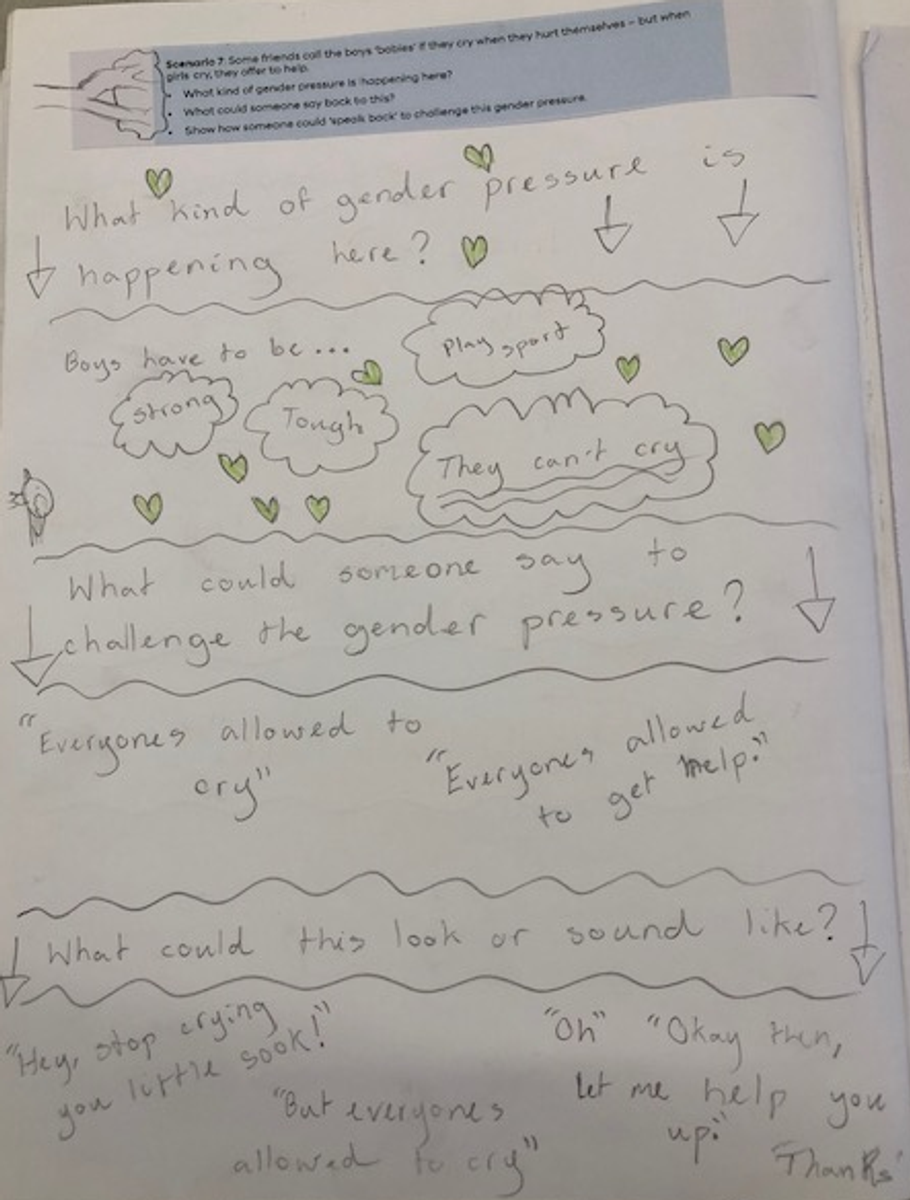 Scenario 7: Some friends call the boys 'babies' if they cry when they hurt themselves – but when
girls cry, they offer to help.
• What kind of gender pressure is happening here?
• What could someone say back to this?
• Show how someone could 'speak back' to challenge this gender pressure.
What kind of gender pressure is
happening here?
Boys have to be...
Play sport
strong
Tough
They can't cry
What could someone say to
challenge the gender pressure?
"Everyones allowed to
cry"
"Everyones allowed
to get help."
What could this look or sound like?
"Hey, stop crying
you little sook!"
"But everyones
allowed to cry"
"Oh" "Okay then,
let me help you
up."
'Thanks'